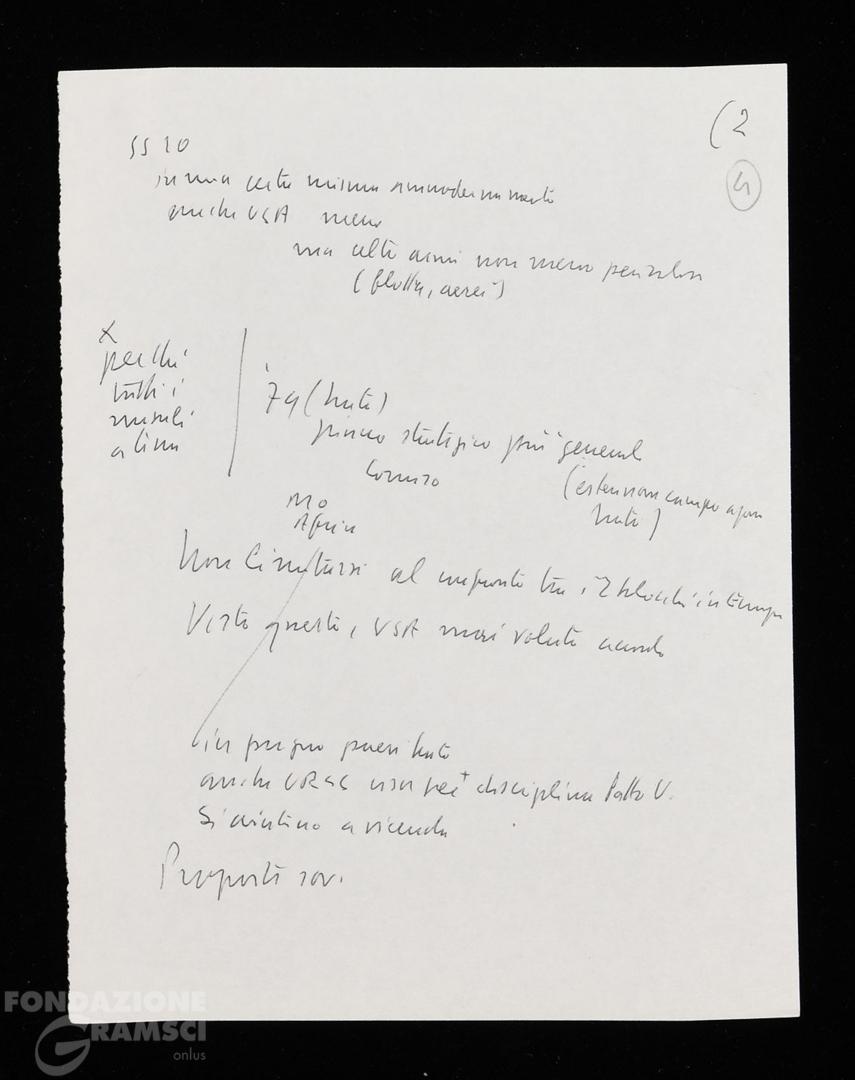 (2
4
SS 20
in una certa misura ammodernamento
anche USA meno
ma altre armi non meno pericolose
(flotta, aerei)
x
perché
tutti i
missili
a terra
'79 (Nato)
piano strategico più generale
Comiso
(estensione campo azione
Nato)
MO
Africa
Non limitarsi al rapporto tra i 2 blocchi in Europa
Visto questo, USA mai voluto accordo
in pugno paesi Nato
anche URSS usa per + disciplina Patto V.
Si aiutano a vicenda
Proposte sov.
FONDAZIONE
GRAMSCI
onlus